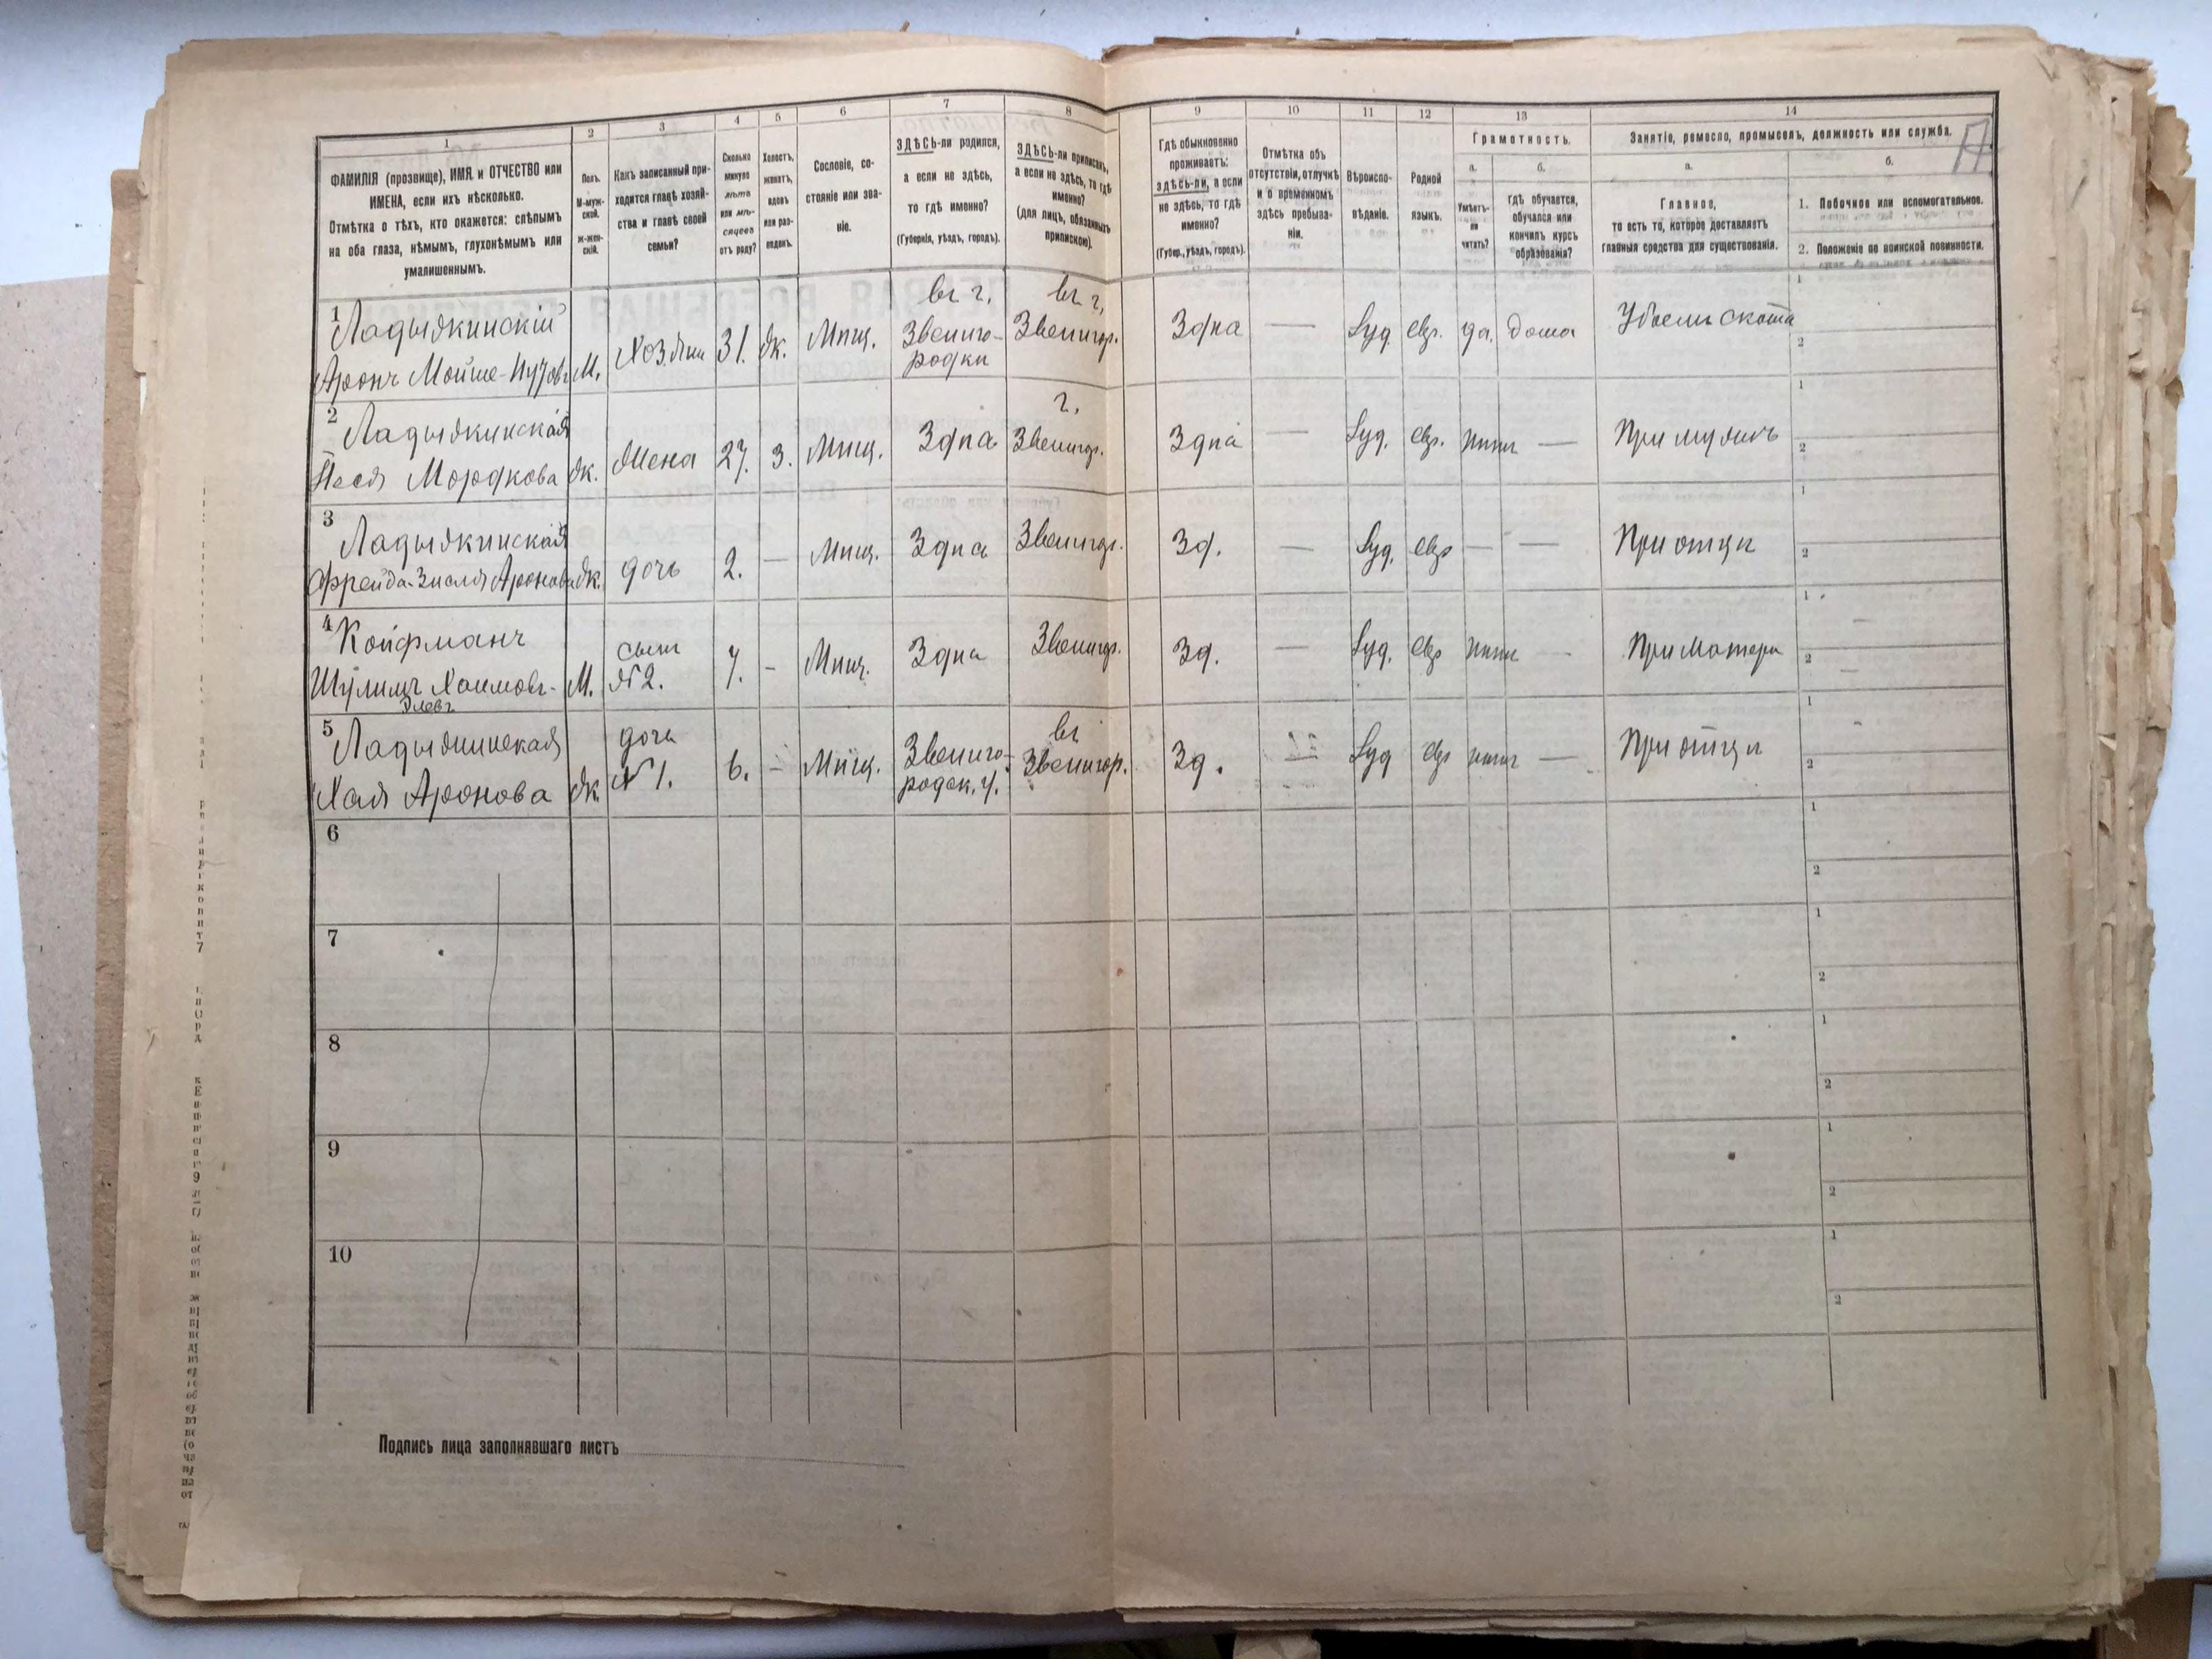 1
2
3
4
5
6
7
8
9
10
11
12
13
14
ФАМИЛІЯ (прозвище), ИМЯ и ОТЧЕСТВО или
ИМЕНА, если ихъ нѣсколько.
Отмѣтка о тѣхъ, кто окажется: слѣпымъ
на оба глаза, нѣмымъ, глухонѣмымъ или
умалишеннымъ.
Полъ.
М-муж-
ской.
ж-жен-
скій.
Какъ записанный при-
ходится главѣ хозяй-
ства и главѣ своей
семьи?
Сколько
минуло
лѣтъ
или мѣ-
сяцевъ
отъ роду?
Холостъ,
женатъ,
вдовъ
или раз-
веденъ.
Сословіе, со-
стояніе или зва-
ніе.
ЗДѢСЬ-ли родился,
а если не здѣсь,
то гдѣ именно?
(Губернія, уѣздъ, городъ).
ЗДѢСЬ-ли приписанъ,
а если не здѣсь, то гдѣ
именно?
(для лицъ, обязанныхъ
припискою).
Гдѣ обыкновенно
проживаетъ:
здѣсь-ли, а если
не здѣсь, то гдѣ
именно?
(Губер., уѣздъ, городъ).
Отмѣтка объ
отсутствіи, отлучкѣ
и о временномъ
здѣсь пребыва-
ніи.
Вѣроиспо-
вѣданіе.
Родной
языкъ.
Грамотность.
а.
Умѣетъ-
ли
читать?
б.
гдѣ обучается,
обучался или
кончилъ курсъ
образованія?
Занятіе, ремесло, промыселъ, должность или служба.
а.
Главное,
то есть то, которое доставляетъ
главныя средства для существованія.
б.
1. Побочное или вспомогательное.
2. Положеніе по воинской повинности.
1
Ладыжинскій
Аронъ Мойше-
М.
Хозяин
31.
ж.
Мѣщ.
въ г.
Звениго-
родки
въ г.
Звенигор.
Здѣсь
—
Іуд.
евр.
да.
дома
скота
1
2
2
Ладыжинская
Песя Мордкова
ж.
Жена
27.
з.
Мѣщ.
Здѣсь
г.
Звенигор.
Здѣсь
—
Іуд.
евр.
нѣтъ
—
При мужѣ
1
2
3
Ладыжинская
Фрейда-Зисля Аронова
ж.
дочь
2.
—
Мѣщ.
Здѣсь
Звенигор.
Зд.
—
Іуд.
евр
—
—
При отцѣ
1
2
4
Койфманъ
Шулимъ Хаимовъ-
М.
сынъ
№2.
7.
-
Мѣщ.
Здѣсь
Звенигор.
Зд.
—
Іуд.
евр
нѣтъ
-
При матери
1
2
5
Ладыжинская
Хая Аронова
ж.
дочь
№1.
6.
-
Мѣщ.
Звениго-
родск. у.
въ
Звенигор.
Зд.
Іуд
евр
нѣтъ
—
При отцѣ
1
2
6
1
2
7
1
2
8
1
2
9
1
2
10
1
2
Подпись лица заполнявшаго листъ